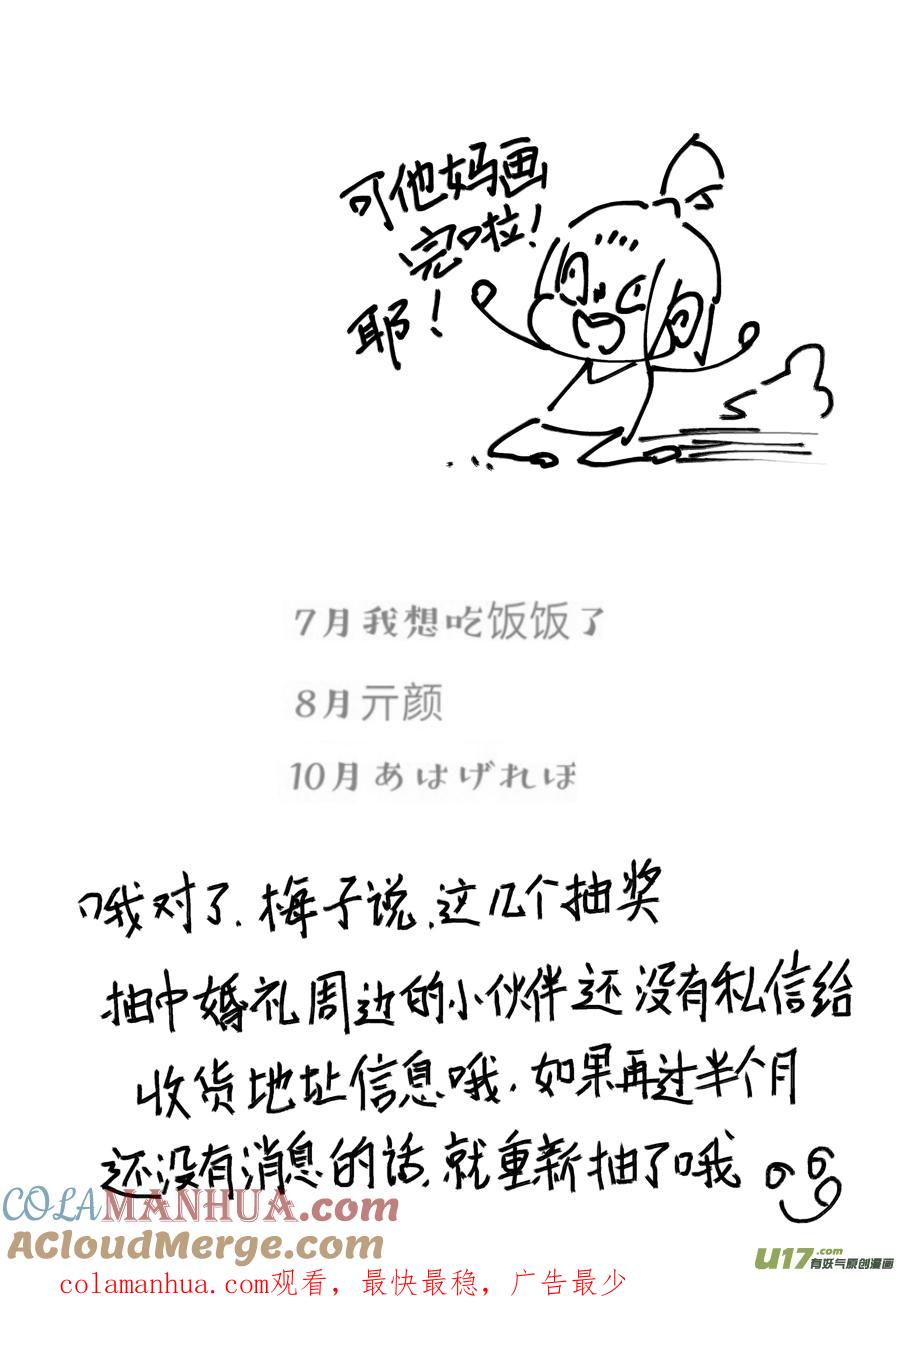 可他妈画
完啦！
耶！
7月我想吃饭饭了
8月亓颜
10月あはげれぼ
哦对了.梅子说.这几个抽奖
抽中婚礼周边的小伙伴还没有私信给
收货地址信息哦.如果再过半个月
还没有消息的话.就重新抽了哦
COLAMANHUA.COM
ACloudMerge.com
colamanhua.com观看，最快最稳，广告最少
U17.com
有妖气原创漫画